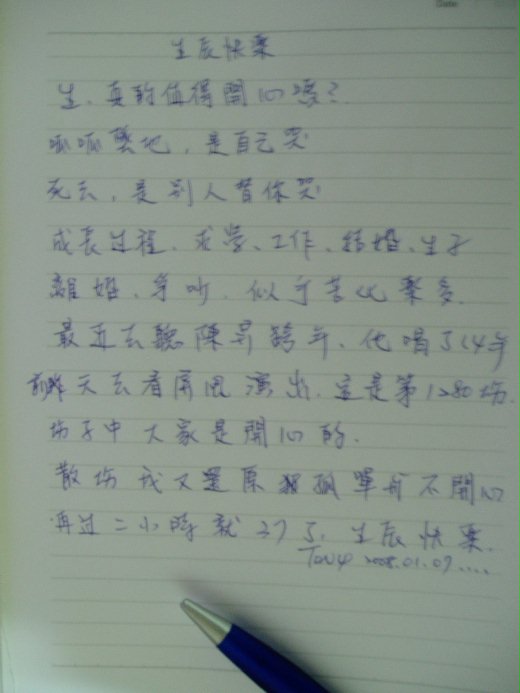 Date
生辰快樂
生、真的值得開心嗎?
呱呱墜地,是自己哭
死去,是別人替你哭
成長过程、求學、工作、結婚、生子
離婚、爭吵、似乎苦比樂多
最近去聽陳昇跨年、他唱了14年
前昨天去看屏風演出、這是第1280場.
場子中大家是開心的.
散場我又還原 孤單與不開心
再过二小時就37了、生辰快樂.
Tony 2008.01.07....